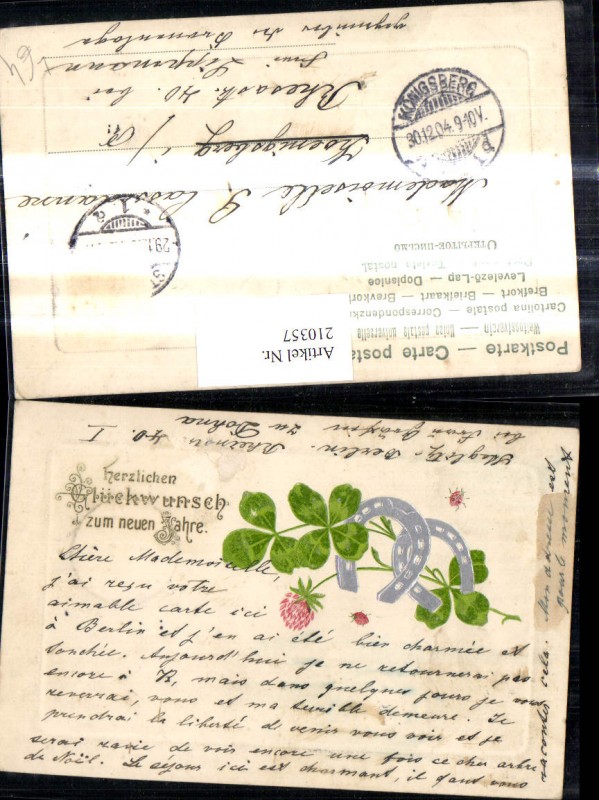 Postkarte — Carte postale
Weltpostverein — Union postale universelle
Cartolina postale — Correspondenzkarte
Brefkort — Briefkaart — Brevkort
Levelező-Lap — Dopisnice
Открытое письмо
Mademoiselle
Koenigsberg i/
bei
Frau Lippmann
gegenüber der
KÖNIGSBERG
30.12.04.9-10V.
29.1
Artikel Nr.
210357
Steglitz-Berlin.
bei Frau Gräfin zu Dohna
Herzlichen
Glückwunsch
zum neuen Jahre.
Chère Mademoiselle,
j'ai reçu votre
aimable carte ici
à Berlin et j'en ai été bien charmée et
touchée. Aujourd'hui je ne retournerai pas
encore à K, mais dans quelques jours je vous
reverrai, vous et ma demeure. Je
prendrai la liberté de venir vous voir et je
serai ravie de voir encore une fois ce cher arbre
de Noël. Le séjour ici est charmant, il faut vous
raconter cela. Mon adresse est
pour le moment